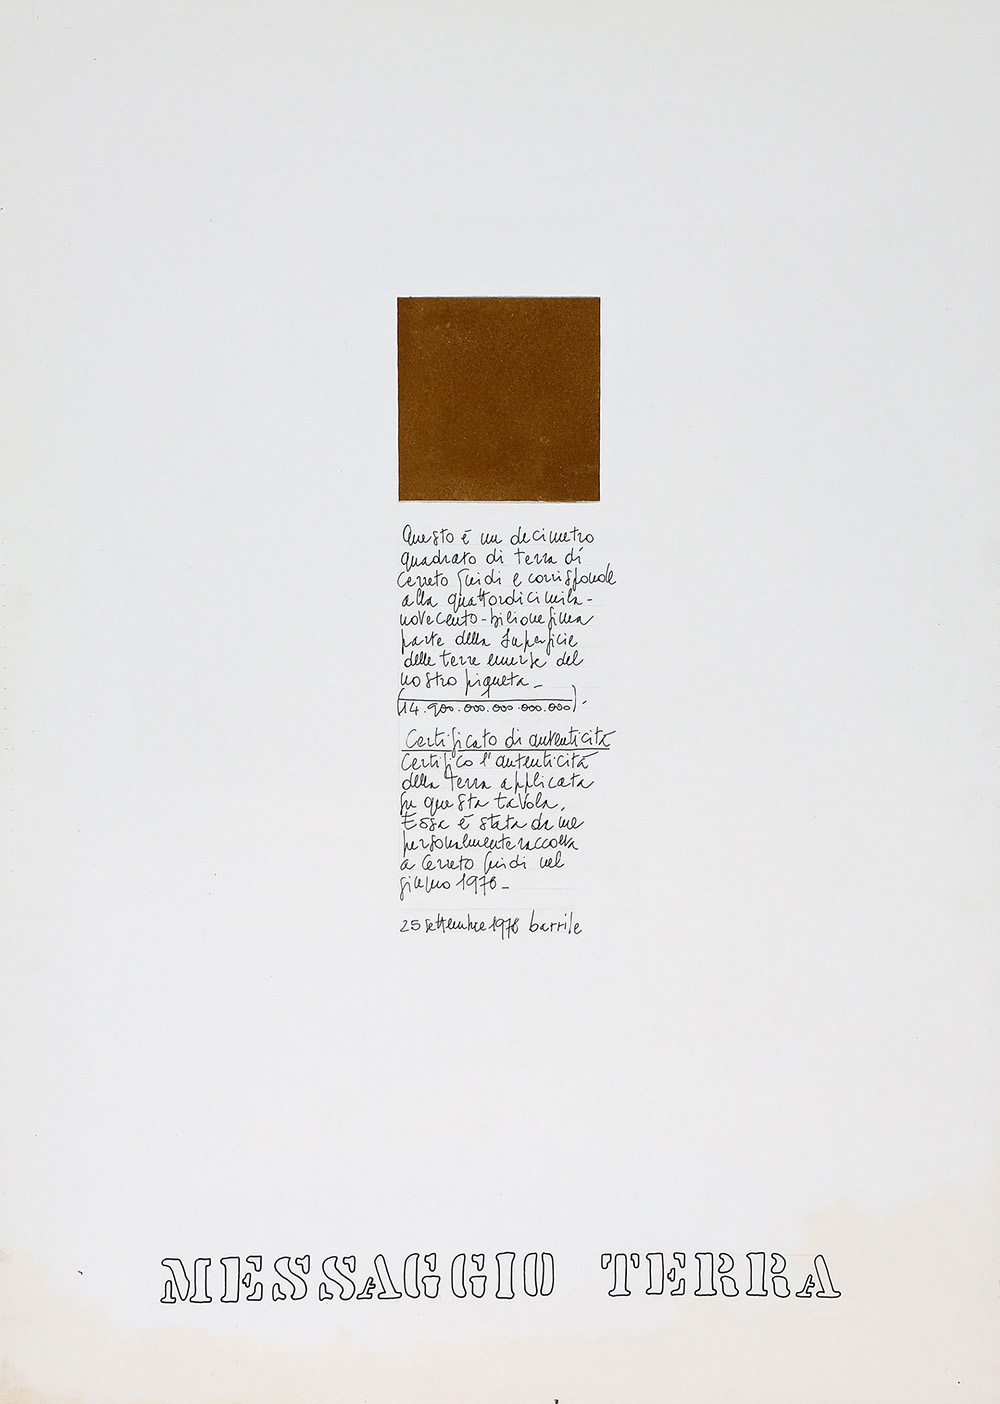 Questo è un decimetro
quadrato di terra di
Cerreto Guidi e corrisponde
alla quattordicimila-
novecento-bilionesima
parte della superficie
delle terre emerse del
nostro pianeta_
(1/14.900.000.000.000.000).
Certificato di autenticità
Certifico l'autenticità
della terra applicata
su questa tavola.
Essa è stata da me
personalmente raccolta
a Cerreto Guidi nel
giugno 1978_
25 settembre 1978 barrile
MESSAGGIO TERRA